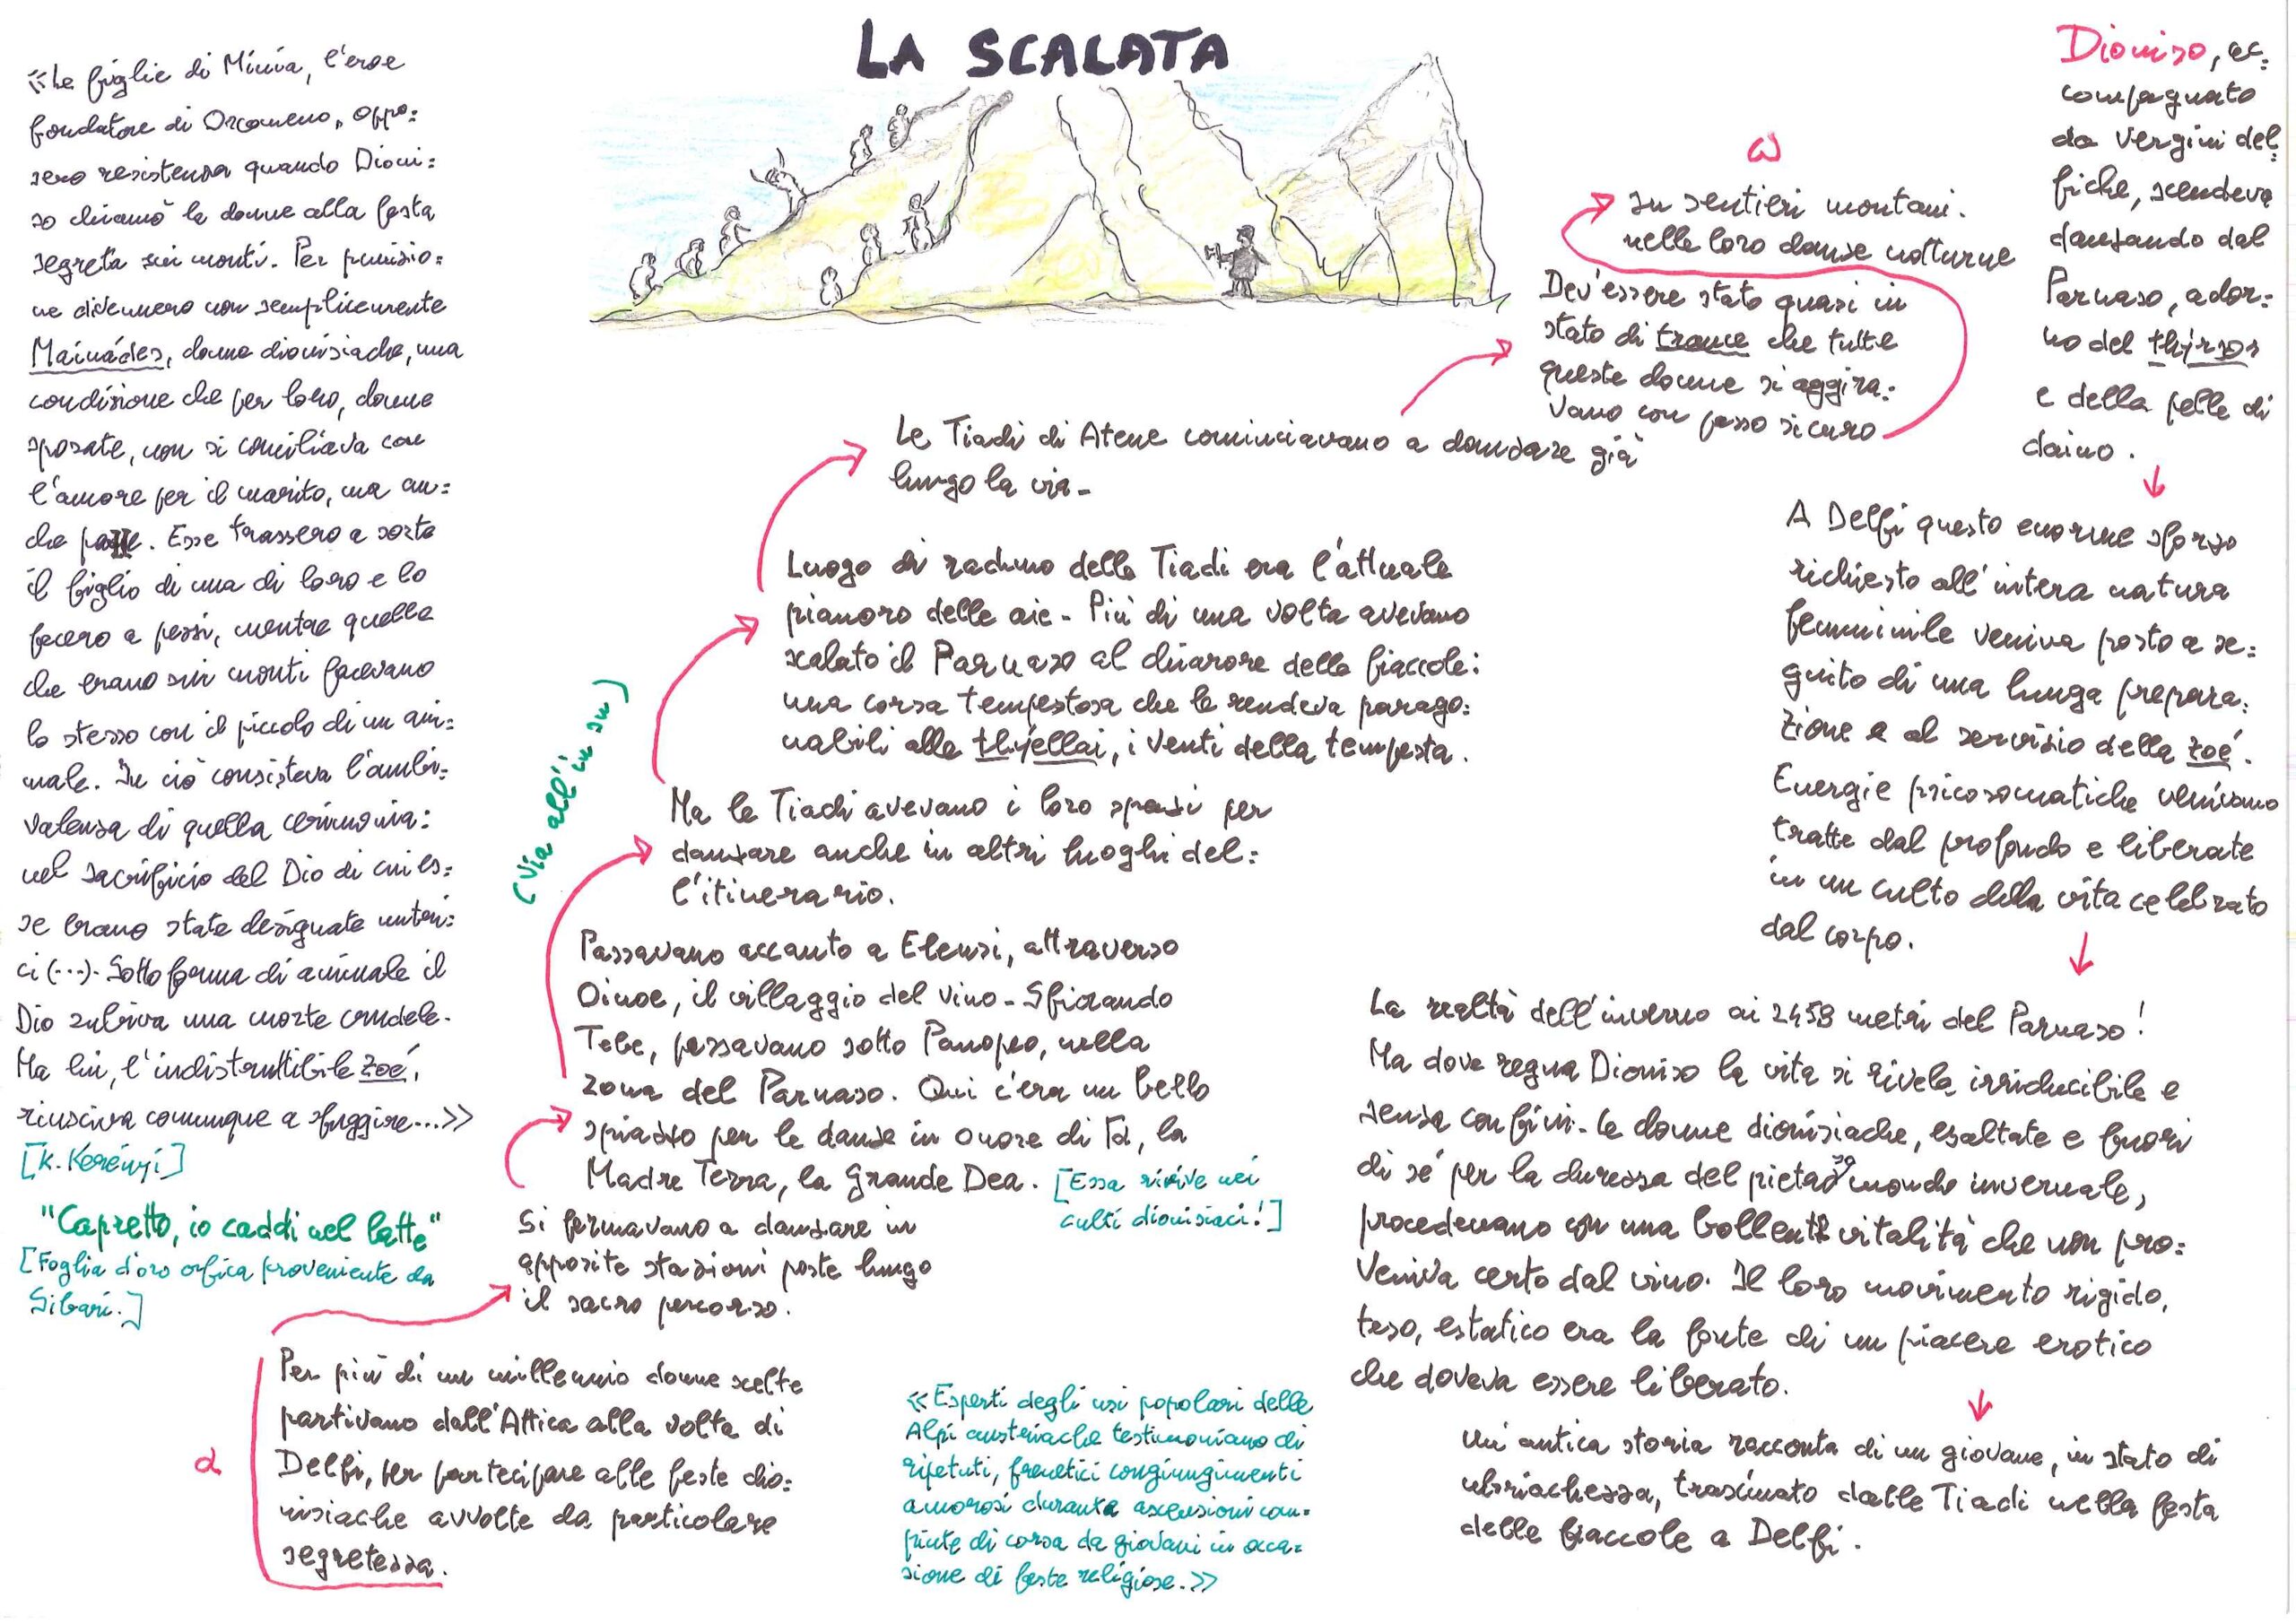 LA SCALATA
«Le figlie di Minia, l'eroe
fondatore di Orcomeno, oppo=
sero resistenza quando Dioni=
so chiamò le donne alla festa
segreta sui monti. Per punizio=
ne divennero non semplicemente
Mainádes, donne dionisiache, una
condizione che per loro, donne
sposate, non si conciliava con
l'amore per il marito, ma an=
che . Esse trassero a sorte
il figlio di una di loro e lo
fecero a pezzi, mentre quelle
che erano sui monti facevano
lo stesso con il piccolo di un ani=
male. In ciò consisteva l'ambi=
valenza di quella cerimonia:
nel sacrificio del Dio di cui es=
se erano state designate nutri=
ci (...). Sotto forma di animale il
Dio subiva una morte crudele.
Ma lui, l'indistruttibile zoé,
riusciva comunque a sfuggire...»
[K. Kerényi]
"Capretto, io caddi nel latte"
[Foglia d'oro orfica proveniente da
Sibari.]
α
Per più di un millennio donne scelte
partivano dall'Attica alla volta di
Delfi, per partecipare alle feste dio=
nisiache avvolte da particolare
segretezza.
Si fermavano a danzare in
apposite stazioni poste lungo
il sacro percorso.
Passavano accanto a Eleusi, attraverso
Oinoe, il villaggio del vino. Sfiorando
Tebe, passavano sotto Panopeo, nella
zona del Parnaso. Qui c'era un bello
spiazzo per le danze in onore di Γᾶ, la
Madre Terra, la Grande Dea. [Essa rivive nei
culti dionisiaci!]
(via all'in su)
Ma le Tiadi avevano i loro spiazzi per
danzare anche in altri luoghi del=
l'itinerario.
Luogo di raduno delle Tiadi era l'attuale
pianoro delle aie. Più di una volta avevano
scalato il Parnaso al chiarore delle fiaccole:
una corsa tempestosa che le rendeva parago=
nabili alle thýellai, i venti della tempesta.
Le Tiadi di Atene cominciavano a danzare già
lungo la via.
Dev'essere stato quasi in
stato di trance che tutte
queste donne si aggira=
vano con passo sicuro
nelle loro danze notturne
su sentieri montani.
ω
Dioniso, ac=
compagnato
da vergini del=
fiche, scendeva
danzando dal
Parnaso, ador=
no del thýrsos
e della pelle di
daino.
A Delfi questo enorme sforzo
richiesto all'intera natura
femminile veniva posto a se=
guito di una lunga prepara=
zione e al servizio della zoé.
Energie psicosomatiche venivano
tratte dal profondo e liberate
in un culto della vita celebrato
dal corpo.
La realtà dell'inverno ai 2459 metri del Parnaso!
Ma dove regna Dioniso la vita si rivela irriducibile e
senza confini. Le donne dionisiache, esaltate e fuori
di sé per la durezza del pietroso mondo invernale,
procedevano con una bollente vitalità che non pro=
veniva certo dal vino. Il loro movimento rigido,
teso, estatico era la fonte di un piacere erotico
che doveva essere liberato.
Un'antica storia racconta di un giovane, in stato di
ubriachezza, trascinato dalle Tiadi nella festa
delle fiaccole a Delfi.
«Esperti degli usi popolari delle
Alpi austriache testimoniano di
ripetuti, frenetici congiungimenti
amorosi durante ascensioni com=
piute di corsa da giovani in occa=
sione di feste religiose.»